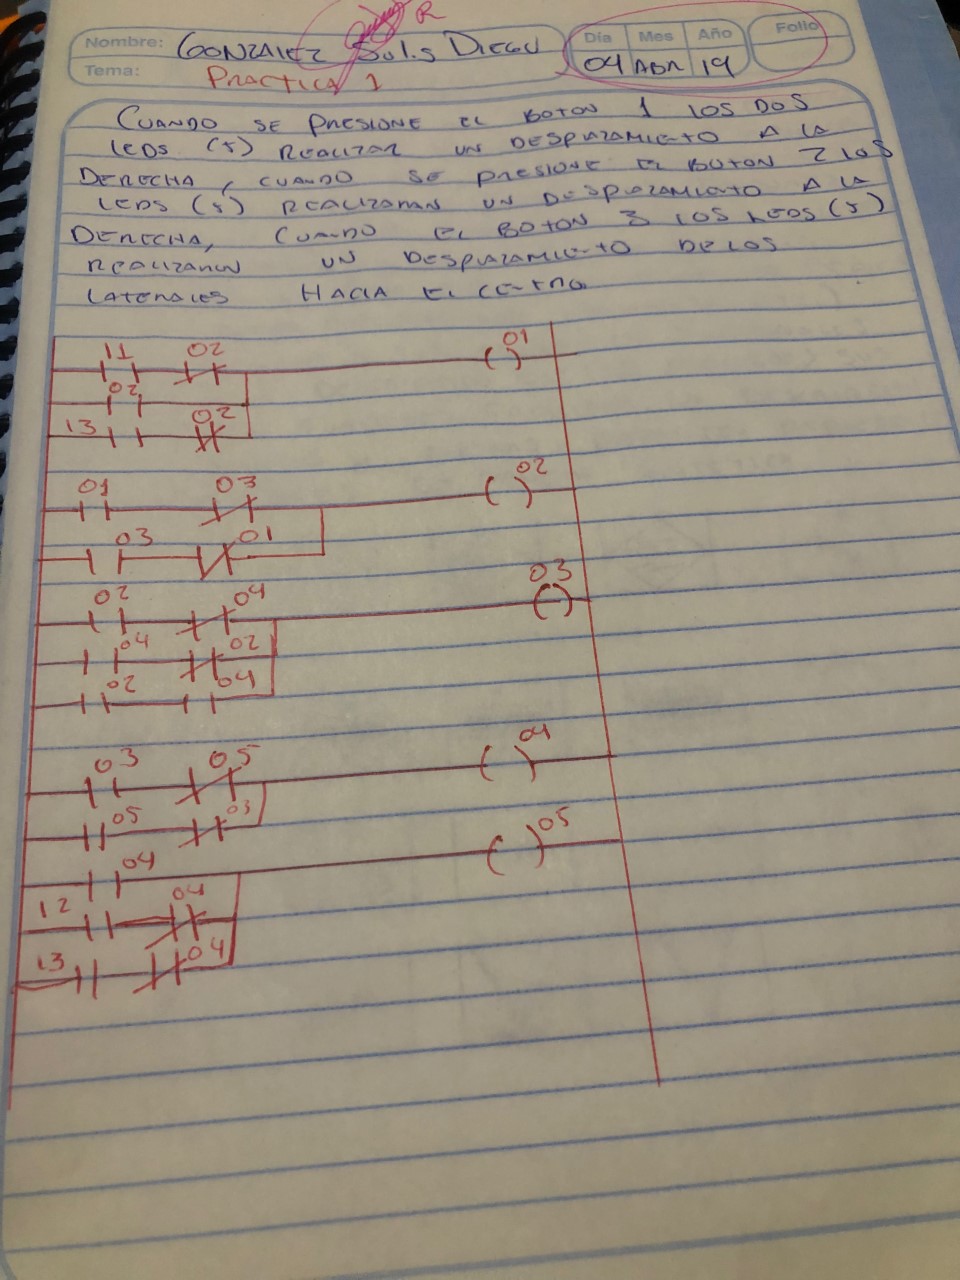 R
Nombre: GONZALEZ Solis DIEGO
Día Mes Año Folio
04 ABR 19
Tema: PRACTICA 1
CUANDO SE PRESIONE EL BOTON 1 LOS DOS
LEDS (5) REALIZAR UN DESPLAZAMIENTO A LA
DERECHA, CUANDO SE PRESIONE EL BOTON 2 LOS
LEDS (5) REALIZARAN UN DESPLAZAMIENTO A LA
DERECHA, CUANDO EL BOTON 3 LOS LEDS (5)
REALIZARAN UN DESPLAZAMIENTO DE LOS
LATERALES HACIA EL CENTRO
11 02 01
02
13 02
01 03 02
03 01
02 04 03
04 02
02 04
03 05 04
05 03
04 05
12 04
13 04